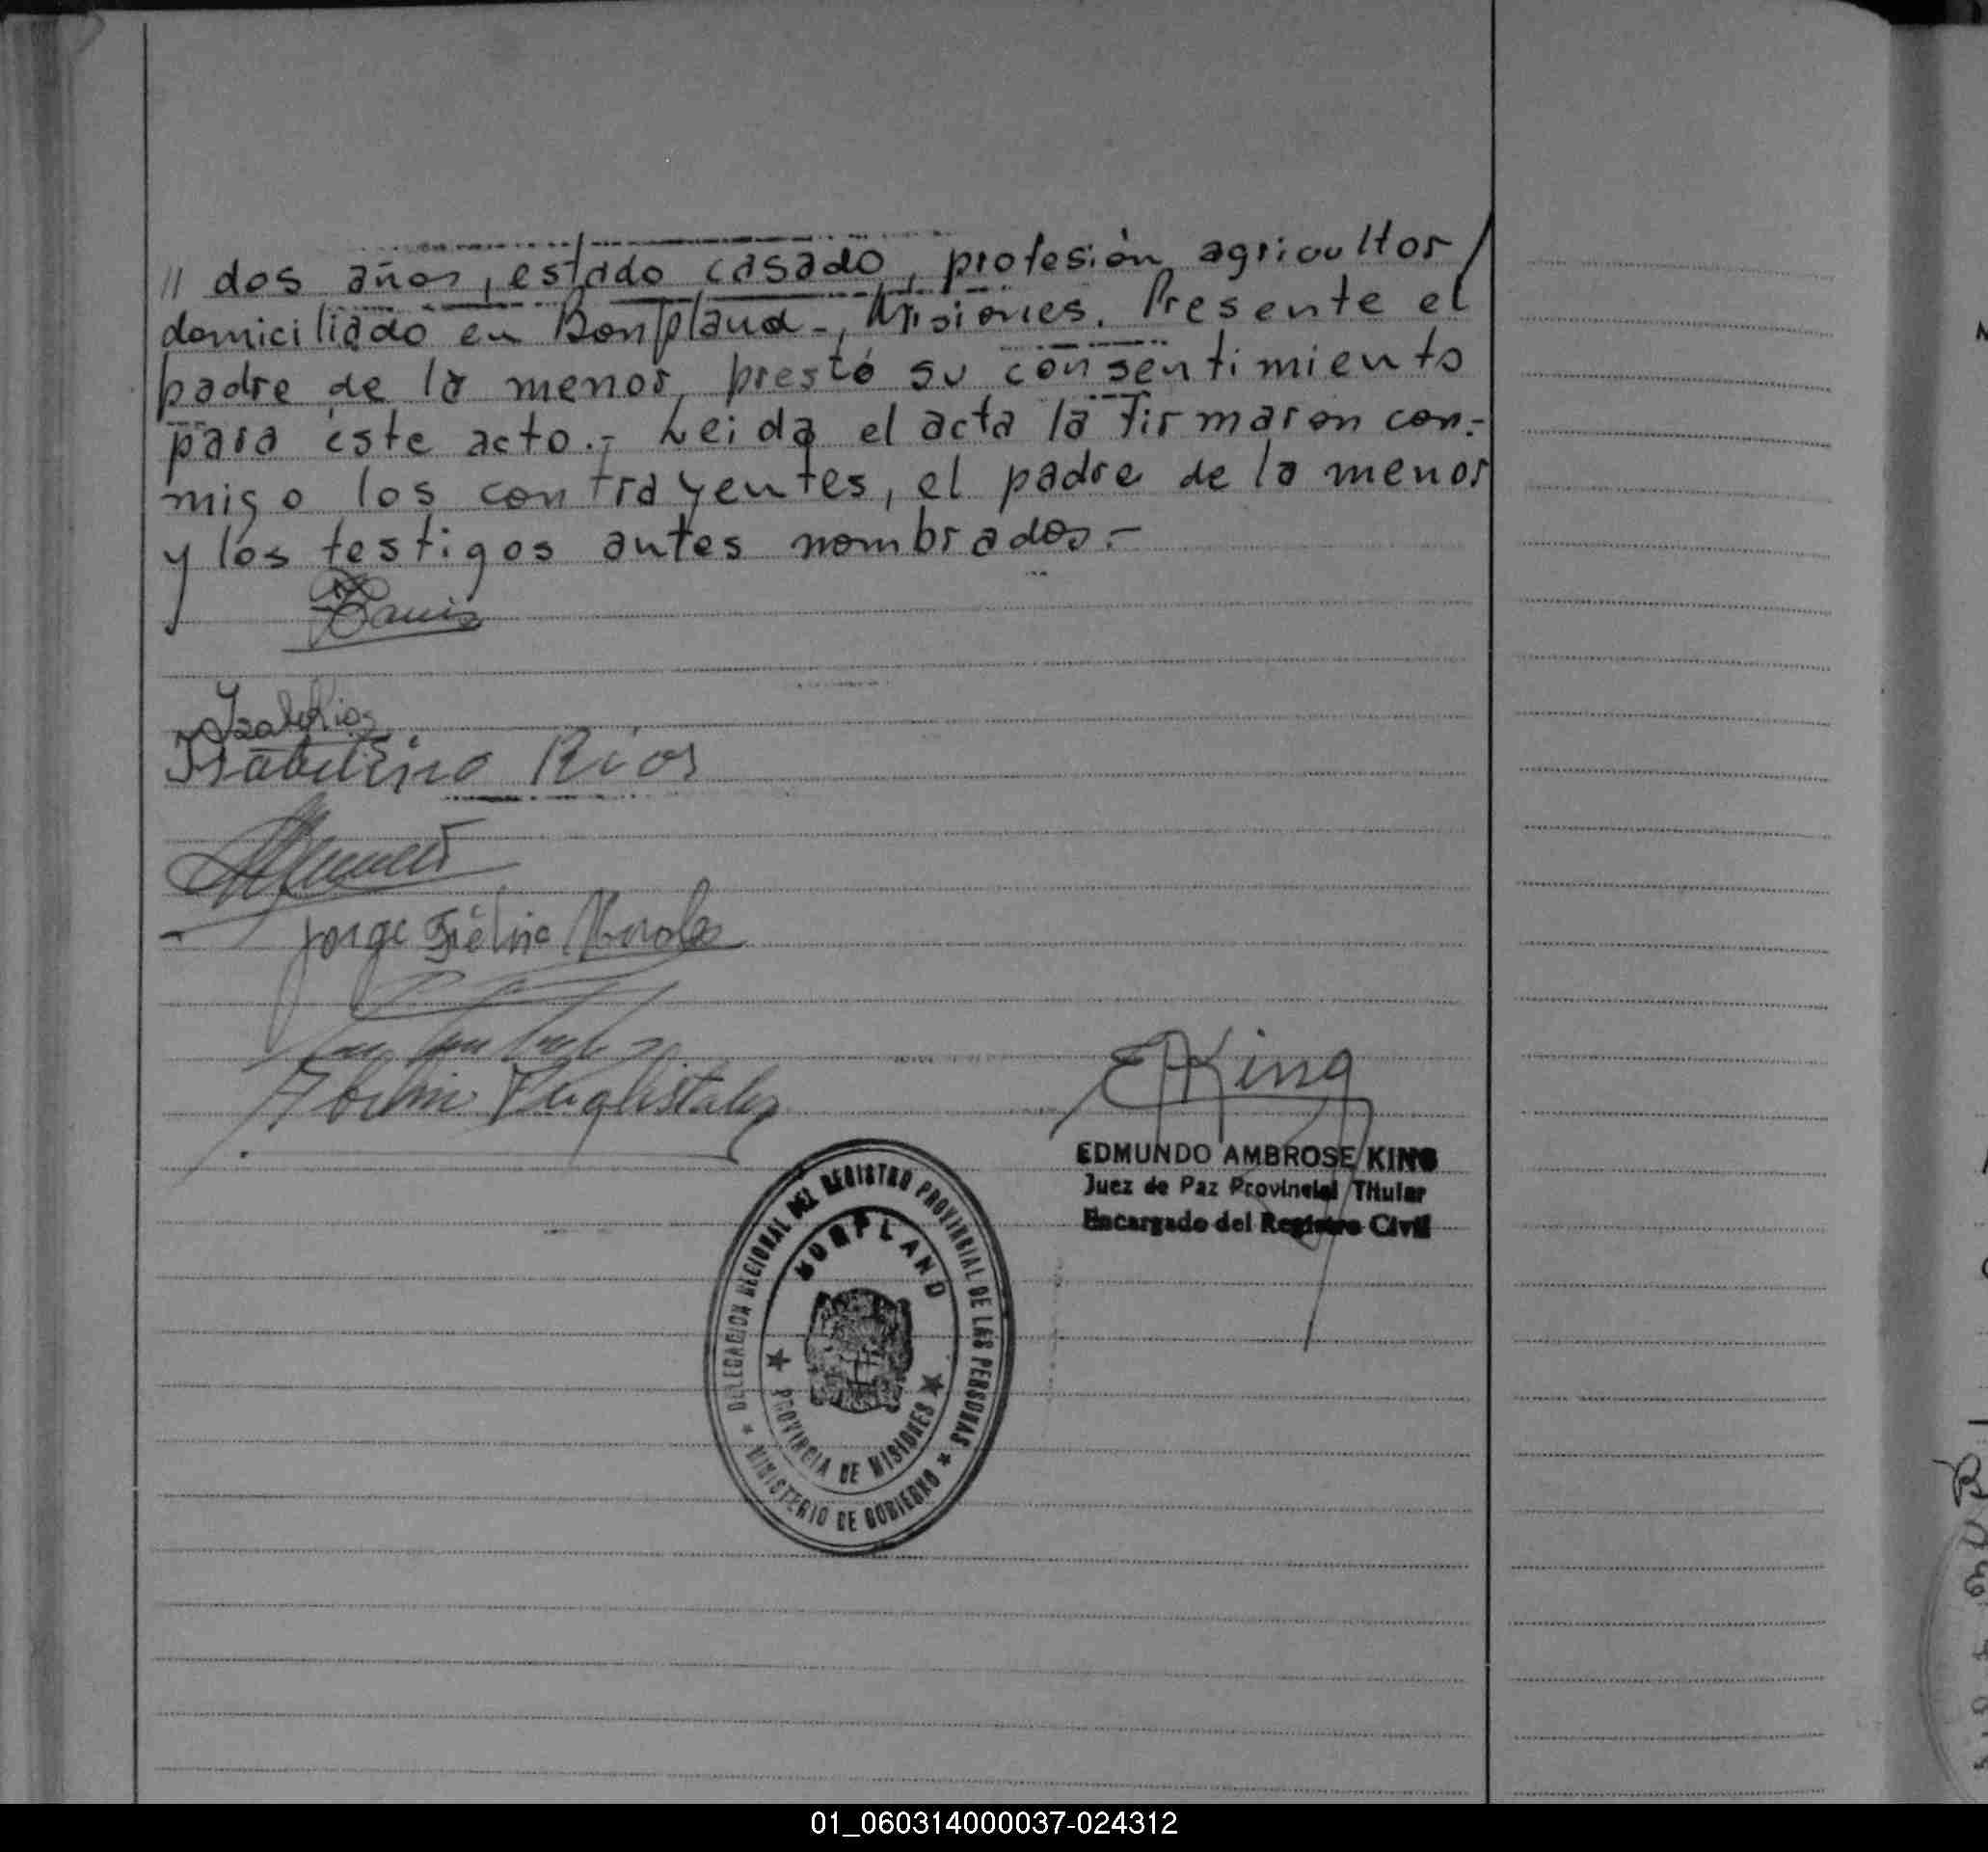 // dos años, estado casado, profesión agricultor/
domiciliado en Bonpland-, Misiones. Presente el
padre de la menor, prestó su consentimiento
para éste acto.- Leida el acta la firmaron con-
migo los contrayentes, el padre de la menor
y los testigos antes nombrados.-
Isabelino Rios
Jorge Morales
EKing
EDMUNDO AMBROSE KING
Juez de Paz Provincial Titular
Encargado del Registro Civil
DELEGACION REGIONAL DEL REGISTRO PROVINCIAL DE LAS PERSONAS
BONPLAND
PROVINCIA DE MISIONES
MINISTERIO DE GOBIERNO
01_060314000037-024312